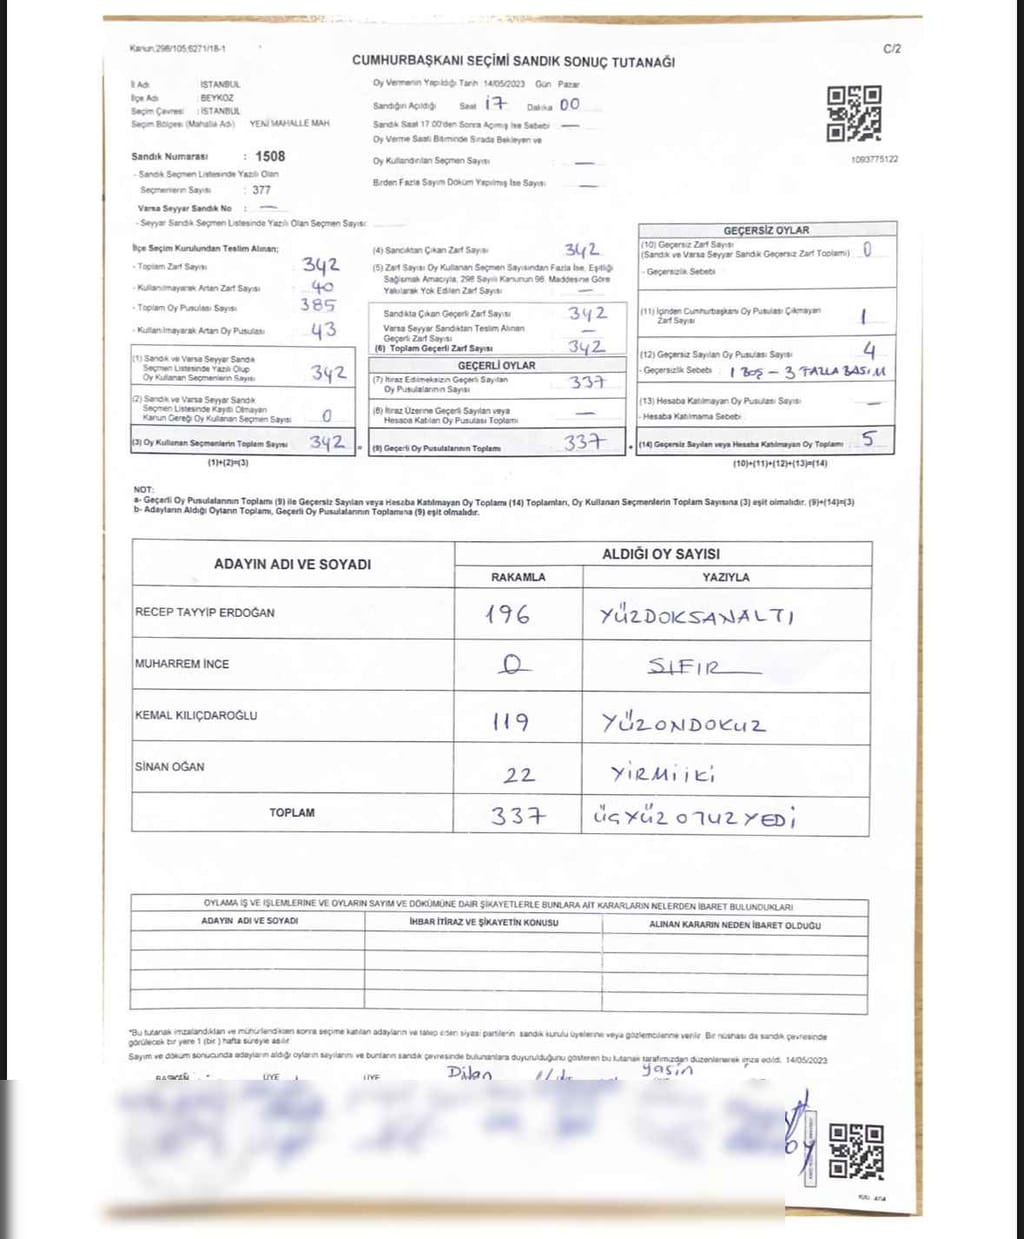 Kanun;298/105;6271/18-1
C/2
CUMHURBAŞKANI SEÇİMİ SANDIK SONUÇ TUTANAĞI
İl Adı İSTANBUL
İlçe Adı BEYKOZ
Seçim Çevresi : İSTANBUL
Seçim Bölgesi (Mahalle Adı) YENİ MAHALLE MAH
Oy Vermenin Yapıldığı Tarih 14/05/2023 Gün Pazar
Sandığın Açıldığı Saat 17 Dakika 00
Sandık Saat 17:00'den Sonra Açımış İse Sebebi —
Oy Verme Saati Bitiminde Sırada Bekleyen ve
Oy Kullandırılan Seçmen Sayısı —
Birden Fazla Sayım Döküm Yapılmış İse Sayısı —
1093775122
Sandık Numarası : 1508
- Sandık Seçmen Listesinde Yazılı Olan
Seçmenlerin Sayısı : 377
Varsa Seyyar Sandık No : —
- Seyyar Sandık Seçmen Listesinde Yazılı Olan Seçmen Sayısı:
İlçe Seçim Kurulundan Teslim Alınan;
- Toplam Zarf Sayısı 342
- Kullanılmayarak Artan Zarf Sayısı 40
- Toplam Oy Pusulası Sayısı 385
- Kullanılmayarak Artan Oy Pusulası 43
(1) Sandık ve Varsa Seyyar Sandık
Seçmen Listesinde Yazılı Olup
Oy Kullanan Seçmenlerin Sayısı 342
(2) Sandık ve Varsa Seyyar Sandık
Seçmen Listesinde Kayıtlı Olmayan
Kanun Gereği Oy Kullanan Seçmen Sayısı 0
(3) Oy Kullanan Seçmenlerin Toplam Sayısı 342
(1)+(2)=(3)
(4) Sandıktan Çıkan Zarf Sayısı 342
(5) Zarf Sayısı Oy Kullanan Seçmen Sayısından Fazla İse, Eşitliği
Sağlamak Amacıyla, 298 Sayılı Kanunun 98. Maddesine Göre
Yakılarak Yok Edilen Zarf Sayısı —
Sandıkta Çıkan Geçerli Zarf Sayısı 342
Varsa Seyyar Sandıktan Teslim Alınan
Geçerli Zarf Sayısı —
(6) Toplam Geçerli Zarf Sayısı 342
GEÇERLİ OYLAR
(7) İtiraz Edilmeksizin Geçerli Sayılan
Oy Pusulalarının Sayısı 337
(8) İtiraz Üzerine Geçerli Sayılan veya
Hesaba Katılan Oy Pusulası Toplamı —
(9) Geçerli Oy Pusulalarının Toplamı 337
GEÇERSİZ OYLAR
(10) Geçersiz Zarf Sayısı
(Sandık ve Varsa Seyyar Sandık Geçersiz Zarf Toplamı) 0
- Geçersizlik Sebebi
(11) İçinden Cumhurbaşkanı Oy Pusulası Çıkmayan
Zarf Sayısı 1
(12) Geçersiz Sayılan Oy Pusulası Sayısı 4
- Geçersizlik Sebebi : 1 BOŞ - 3 FAZLA BASIM
(13) Hesaba Katılmayan Oy Pusulası Sayısı —
- Hesaba Katılmama Sebebi
(14) Geçersiz Sayılan veya Hesaba Katılmayan Oy Toplamı : 5
(10)+(11)+(12)+(13)=(14)
NOT:
a- Geçerli Oy Pusulalarının Toplamı (9) ile Geçersiz Sayılan veya Hesaba Katılmayan Oy Toplamı (14) Toplamları, Oy Kullanan Seçmenlerin Toplam Sayısına (3) eşit olmalıdır. (9)+(14)=(3)
b- Adayların Aldığı Oyların Toplamı, Geçerli Oy Pusulalarının Toplamına (9) eşit olmalıdır.
ADAYIN ADI VE SOYADI ALDIĞI OY SAYISI
RAKAMLA YAZIYLA
RECEP TAYYİP ERDOĞAN 196 YÜZDOKSANALTI
MUHARREM İNCE 0 SIFIR
KEMAL KILIÇDAROĞLU 119 YÜZONDOKUZ
SİNAN OĞAN 22 YİRMİİKİ
TOPLAM 337 ÜÇYÜZOTUZYEDİ
OYLAMA İŞ VE İŞLEMLERİNE VE OYLARIN SAYIM VE DÖKÜMÜNE DAİR ŞİKAYETLERLE BUNLARA AİT KARARLARIN NELERDEN İBARET BULUNDUKLARI
ADAYIN ADI VE SOYADI İHBAR İTİRAZ VE ŞİKAYETİN KONUSU ALINAN KARARIN NEDEN İBARET OLDUĞU
*Bu tutanak imzalandıktan ve mühürlendikten sonra seçime katılan adayların ve talep eden siyasi partilerin sandık kurulu üyelerine veya gözlemcilerine verilir. Bir nüshası da sandık çevresinde
görülecek bir yere 1 (bir) hafta süreyle asılır.
Sayım ve döküm sonucunda adayların aldığı oyların sayılarını ve bunların sandık çevresinde bulunanlara duyurulduğunu gösteren bu tutanak tarafımızdan düzenlenerek imza edildi. 14/05/2023
BAŞKAN ÜYE ÜYE Dilan Yasin